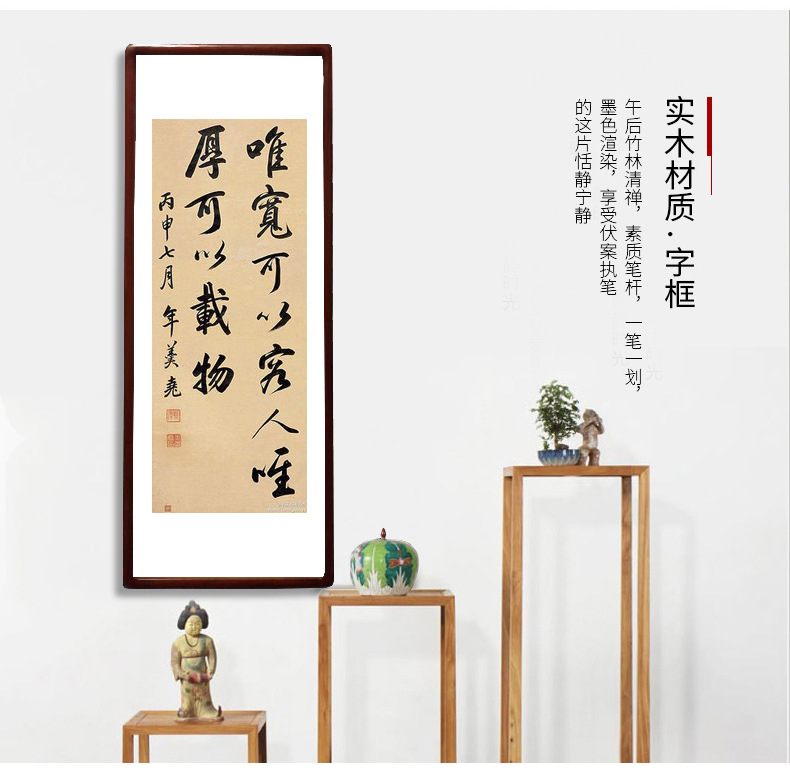 实木材质·字框
午后竹林清禅，素质笔杆，一笔一划，
墨色渲染，享受伏案执笔
的这片恬静宁静
唯寬可以容人唯
厚可以載物
丙申七月 年羹堯